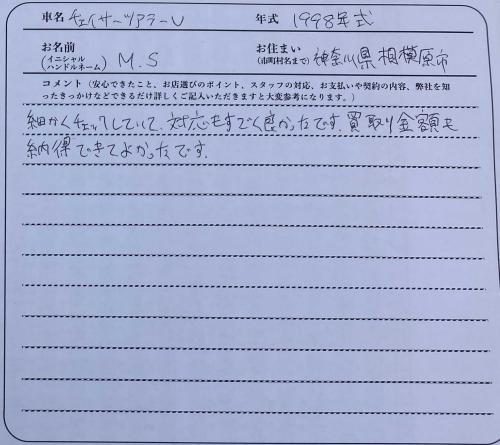 車名 チェイサーツアラーV 年式 1998年式
お名前 (イニシャル ハンドルネーム) M.S お住まい (市町村名まで) 神奈川県相模原市
コメント (安心できたこと、お店選びのポイント、スタッフの対応、お支払いや契約の内容、弊社を知
ったきっかけなどできるだけ詳しくご記入いただきますと大変参考になります。)
細かくチェックしていて、対応もすごく良かったです。買取り金額も
納得できてよかったです。